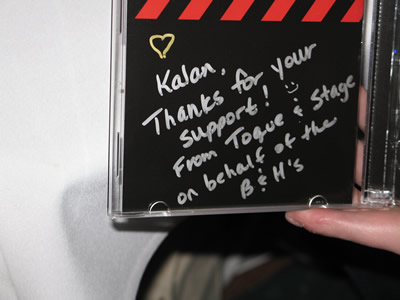 Kalan,
Thanks for your
support!
From Toque & Stage
on behalf of the
B & H's